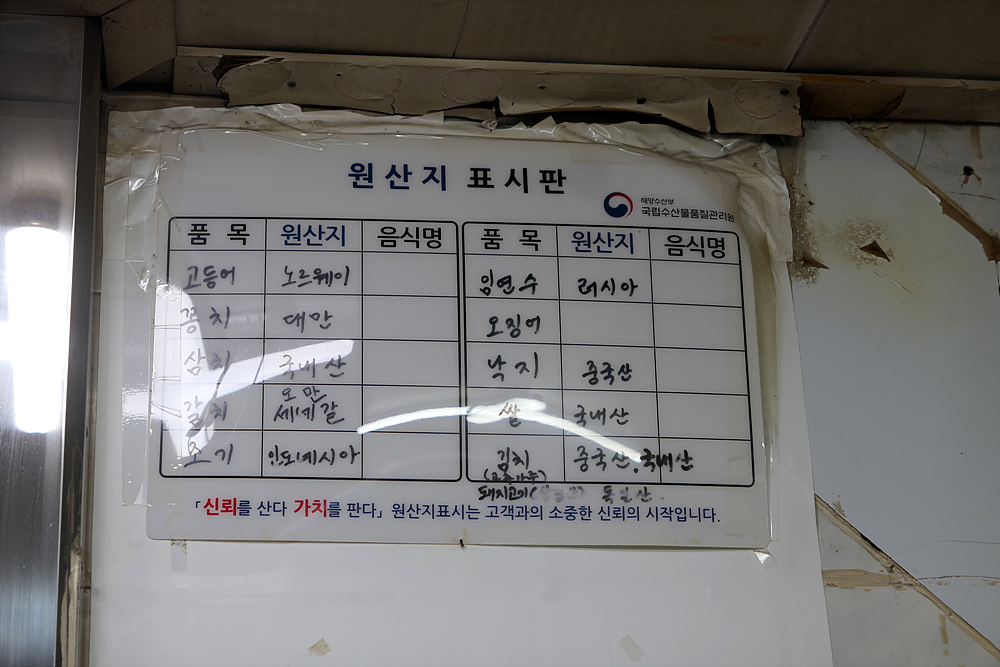 원산지 표시판
해양수산부
국립수산물품질관리원
품목 원산지 음식명 품목 원산지 음식명
고등어 노르웨이 임연수 러시아
꽁치 대만 오징어
삼치 국내산 낙지 중국산
갈치 오만 세네갈 쌀 국내산
조기 인도네시아 김치 중국산, 국내산
(고춧가루)
돼지고기 독일산
「신뢰를 산다 가치를 판다」 원산지표시는 고객과의 소중한 신뢰의 시작입니다.